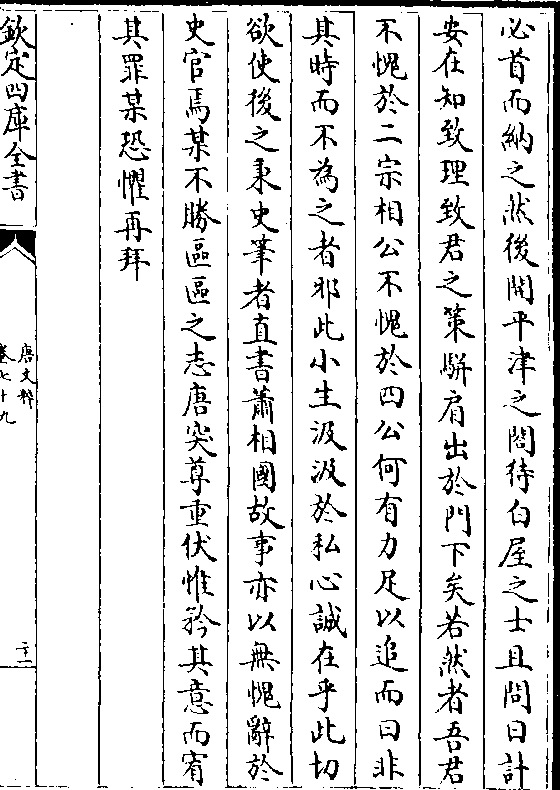 必首而納之然後開平津之閣待白屋之士且問曰計
安在知致理致君之策駢肩出於門下矣若然者吾君
不愧於二宗相公不愧於四公何有力足以追而曰非
其時而不為之者邪此小生汲汲於私心誠在乎此切
欲使後之秉史筆者直書蕭相國故事亦以無愧辭於
史官焉某不勝區區之志唐突尊重伏惟矜其意而宥
其罪某恐懼再拜
欽定四庫全書
唐文粹
卷七十九
二十二